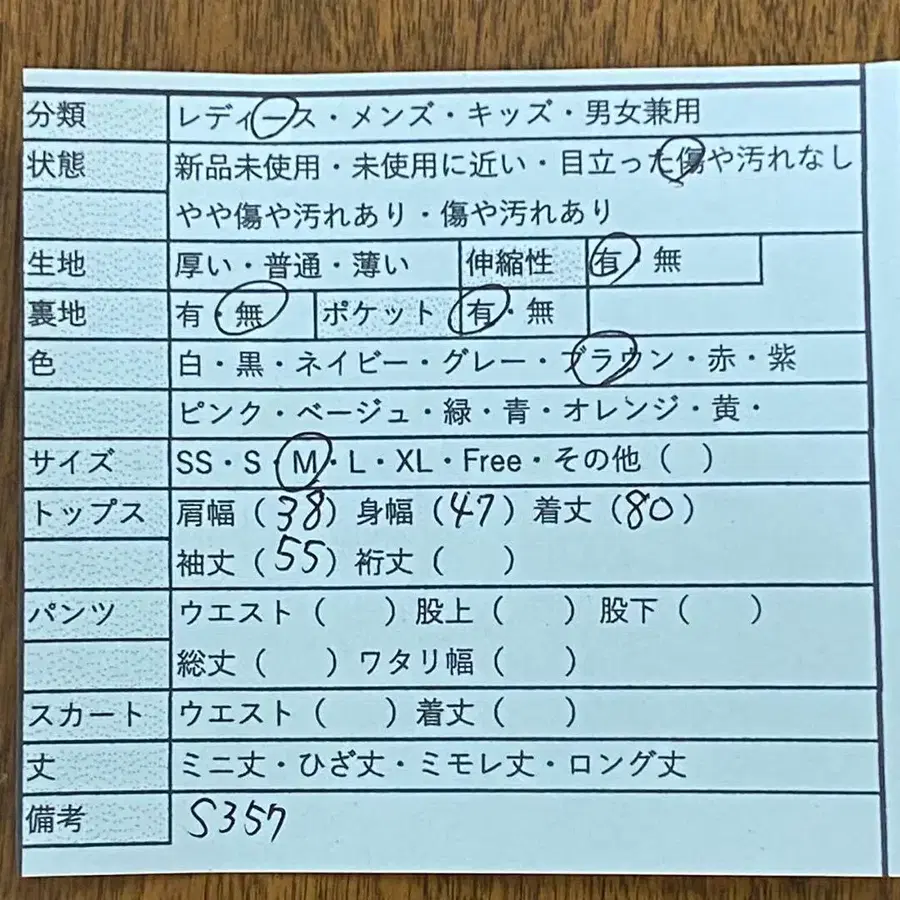 分類 レディース・メンズ・キッズ・男女兼用
状態 新品未使用・未使用に近い・目立った傷や汚れなし
やや傷や汚れあり・傷や汚れあり
生地 厚い・普通・薄い 伸縮性 有・無
裏地 有・無 ポケット 有・無
色 白・黒・ネイビー・グレー・ブラウン・赤・紫
ピンク・ベージュ・緑・青・オレンジ・黄・
サイズ SS・S・M・L・XL・Free・その他（ ）
トップス 肩幅（38）身幅（47）着丈（80）
袖丈（55）裄丈（ ）
パンツ ウエスト（ ）股上（ ）股下（ ）
総丈（ ）ワタリ幅（ ）
スカート ウエスト（ ）着丈（ ）
丈 ミニ丈・ひざ丈・ミモレ丈・ロング丈
備考 S357